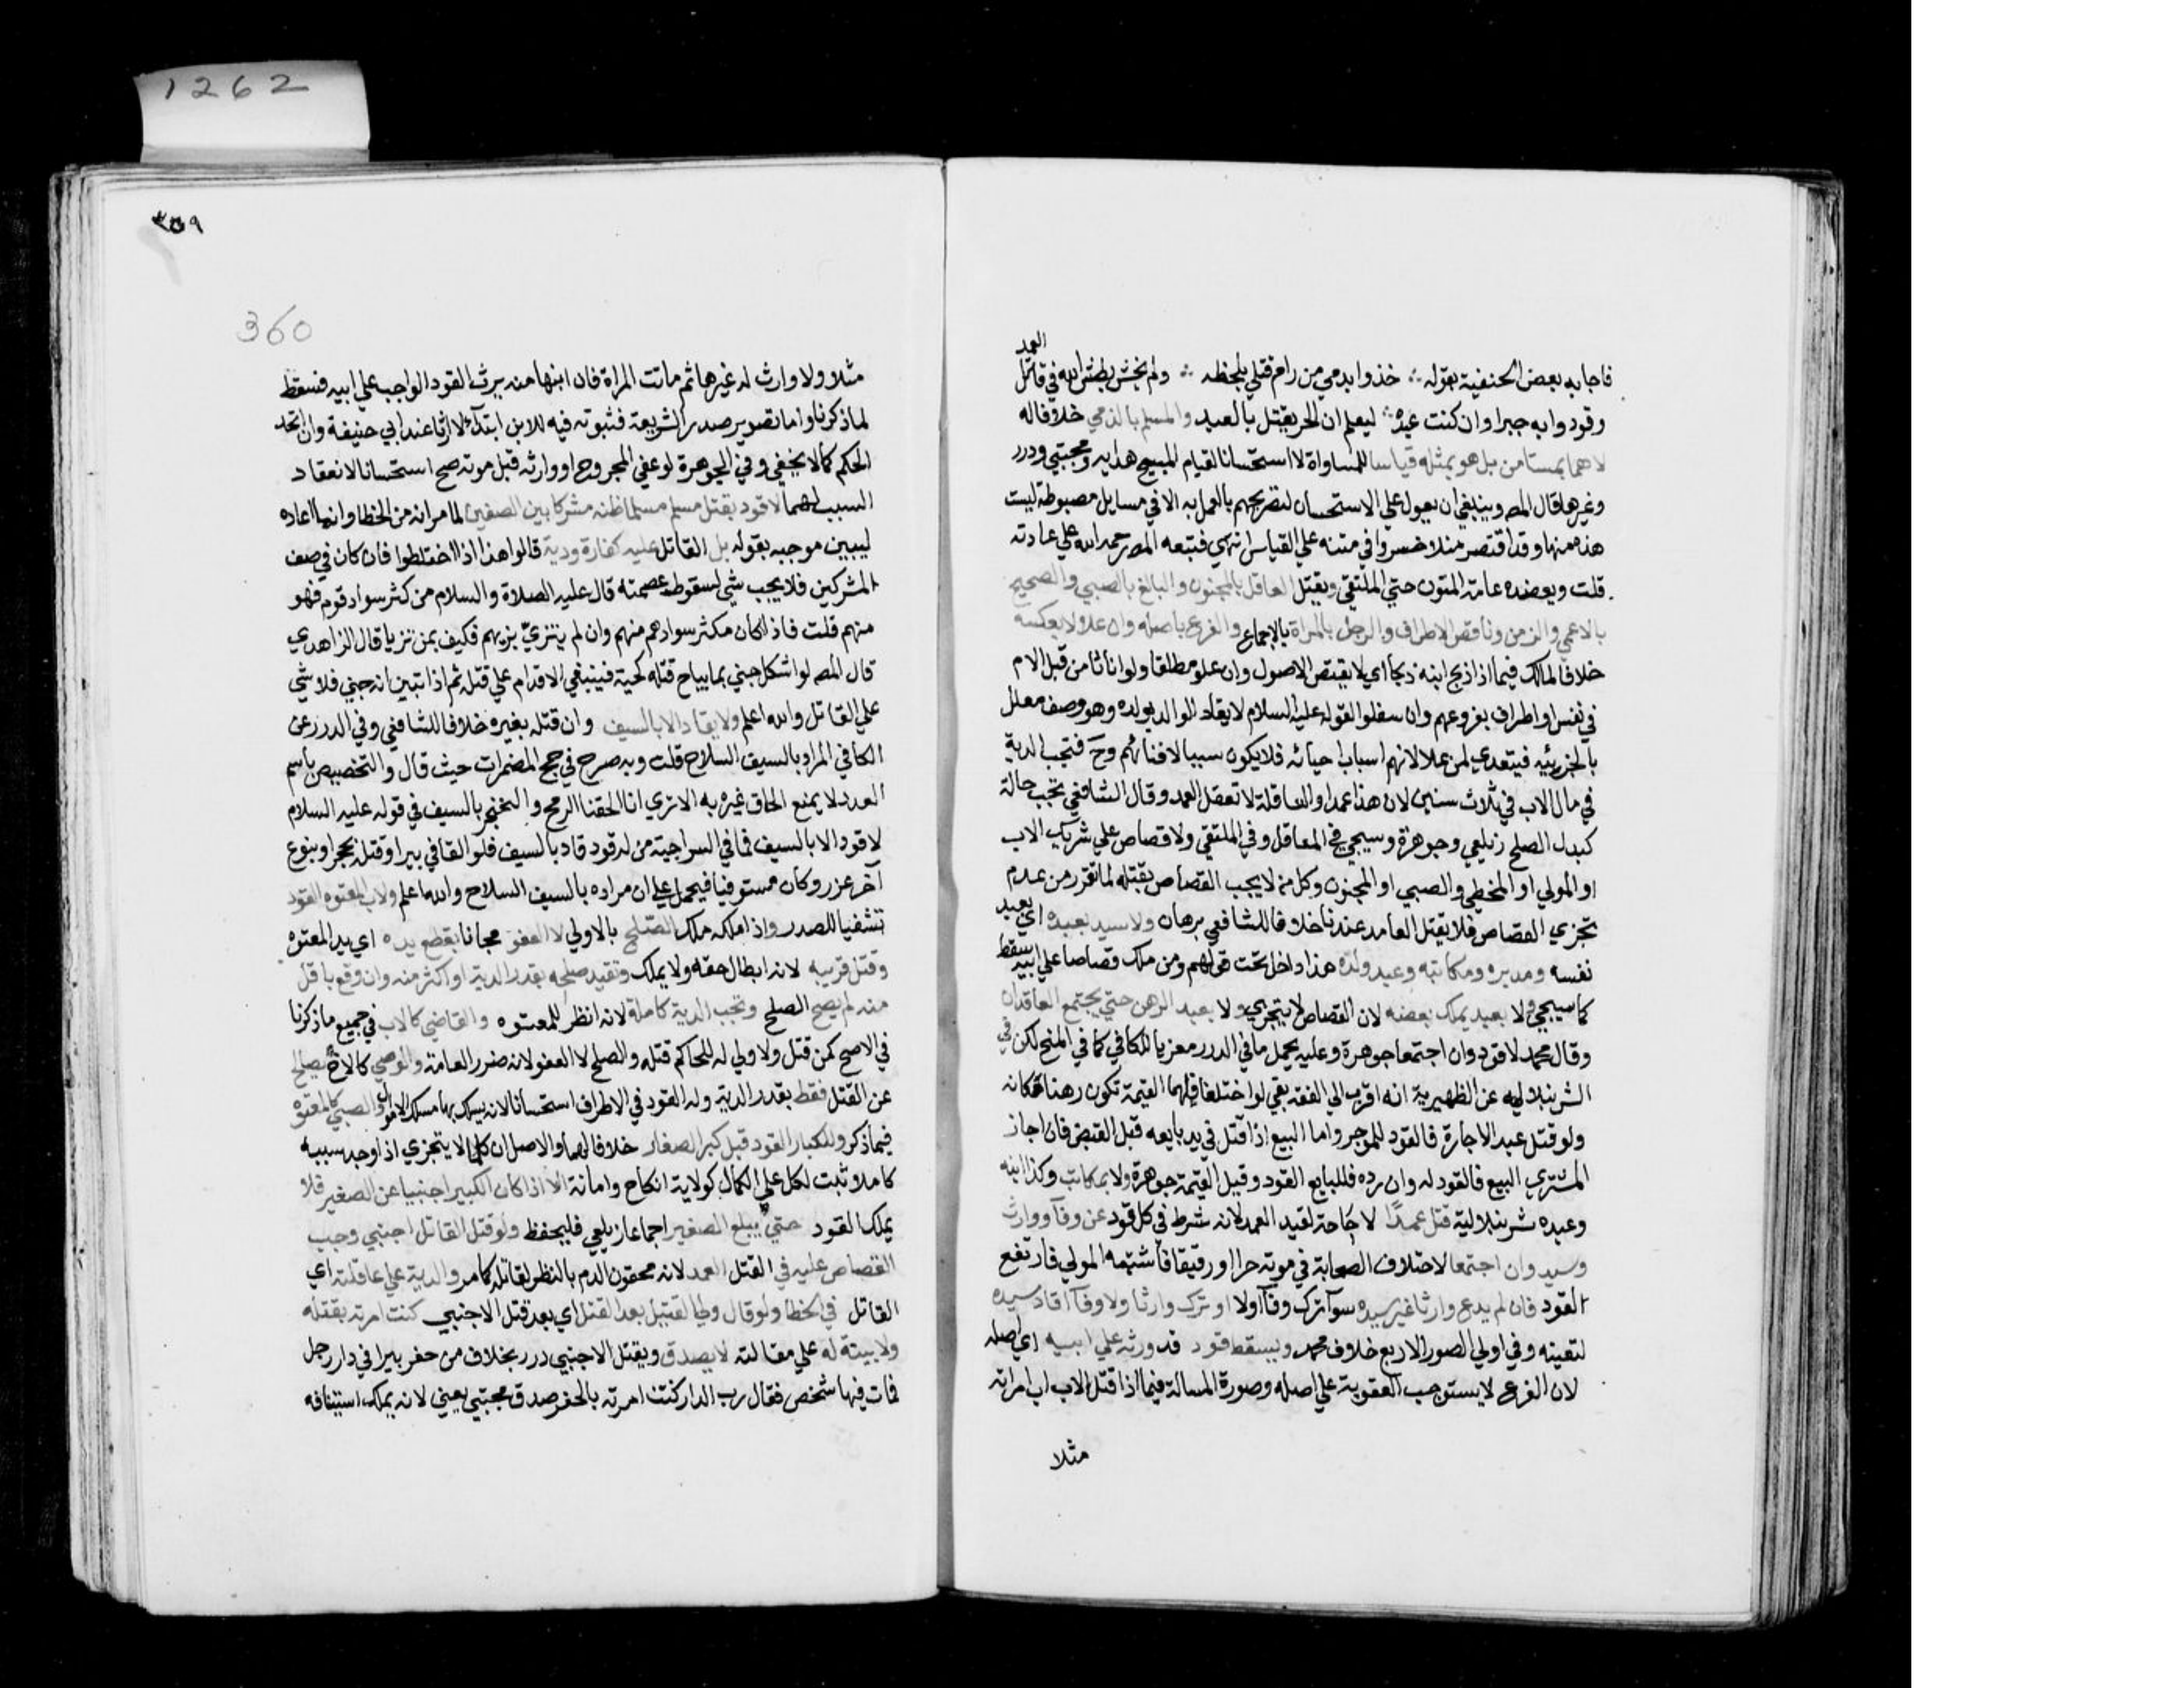 1262
العمد
فاجابه بعض الحنفية بقوله ∴ خذوا بدمي من رام قتلي بلحظه ∴ ولم يخش بطش الله في قاتل
وقودوا به جبرا وان كنت عبده ∴ ليعلم ان الحر يقتل بالعبد والمسلم بالذمي خلافا له
لا هما بمستامن بل هو بمثله قياسا للمساواة لا استحسانا لقيام المبيح هدايه ومجتبي ودرر
وغيرها قال المصـ وينبغي ان يعول علي الاستحسان لتصريحهم بالعمل به الا في مسايل مضبوطة ليست
هذه منها وقد اقتصر منلا خسروا في متنه علي القياس انتهي فتبعه المصـ رحمه الله علي عادته
قلت ويعضده عامة المتون حتي الملتقي ويقتل العاقل بالمجنون والبالغ بالصبي والصحيح
بالاعمي والزمن وناقص الاطراف والرجل بالمراة بالاجماع والفرع باصله وان علا ولا بعكسه
خلافا لمالك فيما اذا ذبح ابنه ذبحا اي لا يقتص الاصول وان علو مطلقا ولو اناثا من قبل الام
في نفس او اطراف بفروعهم وان سفلوا لقوله عليه السلام لا يقاد الوالد بولده وهو وصف معلل
بالجزئيه فيتعدي لمن علا لانهم اسباب احيائه فلا يكون سببا لافنائهم وح فتجب الدية
في مال الاب في ثلاث سنين لان هذا عمدا والعاقلة لا تعقل العمد وقال الشافعي تجب حالة
كبدل الصلح زيلعي وجوهرة وسيجي في المعاقل وفي الملتقي ولا قصاص علي شريك الاب
او المولي او المخطي والصبي او المجنون وكل من لا يجب القصاص بقتله لما تقرر من عدم
تجزي القصاص فلا يقتل العامد عندنا خلافا للشافعي برهان ولا سيد بعبده اي بعبد
نفسه ومدبره ومكاتبه وعبد ولده هذا داخل تحت قولهم ومن ملك قصاصا علي ابيه سقط
كما سيجي ولا بعبد يملك بعضه لان القصاص لا يتجزي ولا بعبد الرهن حتي يجتمع العاقدان
وقال محمد لا قود وان اجتمعا جوهرة وعليه يحمل ما في الدرر معزيا للكافي كما في المنح لكن في
الشرنبلاليه عن الظهيرية انه اقرب الي الفقه بقي لو اختلفا فلهما القيمة تكون رهنا مكانه
ولو قتل عبد الاجارة فالقود للموجر واما البيع اذا قتل في يد بايعه قبل القبض فان اجاز
المشتري البيع فالقود له وان رده فللبايع القود وقيل القيمة جوهرة ولا بمكاتب وكذا ابنه
وعبده شرنبلالية قتل عمدًا لا حاجة لقيد العمد لانه شرط في كل قود عن وفآ ووارث
وسيد وان اجتمعا لاختلاف الصحابة في موته حرا او رقيقا فاشتبه المولي فارتفع
القود فان لم يدع وارثا غير سيده سوآ ترك وفآ اولا او ترك وارثا ولا وفآ اقاد سيده
لتعينه وفي اولي الصور الاربع خلاف محمد ويسقط قود قد ورثه علي ابيه اي اصله
لان الفرع لا يستوجب العقوبة علي اصله وصورة المسالة فيما اذا قتل الاب اب امراته
مثلا
٣٥٩
360
مثلا ولا وارث له غيرها ثم ماتت المراة فان ابنها منه يرث القود الواجب علي ابيه فسقط
لما ذكرنا واما تصوير صدر الشريعة فثبوته فيه للابن ابتدآء لا ارثا عند ابي حنيفة وان اتحد
الحكم كما لا يخفي وفي الجوهرة لو عفي المجروح او وارثه قبل موته صح استحسانا لانعقاد
السبب لهما لا قود بقتل مسلم مسلما ظنه مشركا بين الصفين لما مر انه من الخطا وانما اعاده
ليبين موجبه بقوله بل القاتل عليه كفارة ودية قالوا هذا اذا اختلطوا فان كان في صف
المشركين فلا يجب شي لسقوط عصمته قال عليه الصلاة والسلام من كثر سواد قوم فهو
منهم قلت فاذا كان مكثر سوادهم منهم وان لم يتزيّ بزيهم فكيف بمن تزيا قال الزاهدي
قال المصـ لو اشكل جني بما يباح قتله كحية فينبغي الاقدام علي قتله ثم اذا تبين انه جني فلا شي
علي القاتل والله اعلم ولا يقاد الا بالسيف وان قتله بغيره خلافا للشافعي وفي الدرر عن
الكافي المراد بالسيف السلاح قلت وبه صرح في حج المضمرات حيث قال والتخصيص باسم
العدد لا يمنع الحاق غيره به الا تري انا الحقنا الرمح والخنجر بالسيف في قوله عليه السلام
لا قود الا بالسيف فما في السراجية من له قود قاد بالسيف فلو القا في بير او قتله بحجر او بنوع
آخر عزر وكان مستوفيا فيحمل علي ان مراده بالسيف السلاح والله اعلم ولاب المعتوه القود
تشفيا للصدر واذا ملكه ملك الصلح بالاولي لا العفو مجانا بقطع يده اي يد المعتوه
وقتل قريبه لانه ابطال حقه ولا يملك وتقيد صلحه بقدر الدية او اكثر منه وان وقع باقل
منه لم يصح الصلح وتجب الدية كاملة لانه انظر للمعتوه والقاضي كالاب في جميع ما ذكرنا
في الاصح كمن قتل ولا ولي له للحاكم قتله والصلح لا العفو لانه ضرر العامة والوصي كالاخ يصالح
عن القتل فقط بقدر الدية وله القود في الاطراف استحسانا لانه يسلك بها مسلك الاموال والصبي كالمعتوه
فيما ذكر وللكبار القود قبل كبر الصغار خلافا لهما والاصل ان كلما لا يتجزي اذا وجد سببه
كاملا ثبت لكل علي الكمال كولاية انكاح وامانة الا اذا كان الكبير اجنبيا عن الصغير فلا
يملك القود حتي يبلع الصغير اجماعا زيلعي فليحفظ ولو قتل القاتل اجنبي وجب
القصاص عليه في القتل العمد لانه محقون الدم بالنظر لقاتله كما مر والدية علي عاقلته اي
القاتل في الخطا ولو قال ولي القتيل بعد القتل اي بعد قتل الاجنبي كنت امرته بقتله
ولا بينة له علي مقالته لا يصدق ويقتل الاجنبي درر بخلاف من حفر بيرا في دار رجل
فمات فيها شخص فقال رب الدار كنت امرته بالحفر صدق مجتبي يعني لانه يملك استينافه